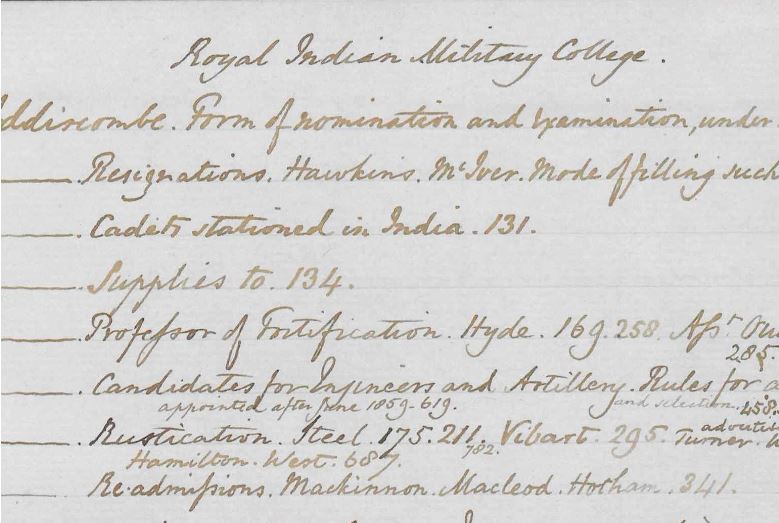 Royal Indian Military College.
ddiscombe. Form of nomination and Examination, under
Resignations. Hawkins. McIver. Mode of filling such
Cadets stationed in India. 131.
Supplies to. 134.
Professor of Fortification. Hyde. 169. 258. Assr
285
Candidates for Engineers and Artillery. Rules for a
appointed after June 1859-619. and selection. 458.
Rustication. Steel. 175. 211. 782. Vibart. 295. Turner.
Hamilton. West. 687.
Re-admissions. Mackinnon. Macleod. Hotham. 341.